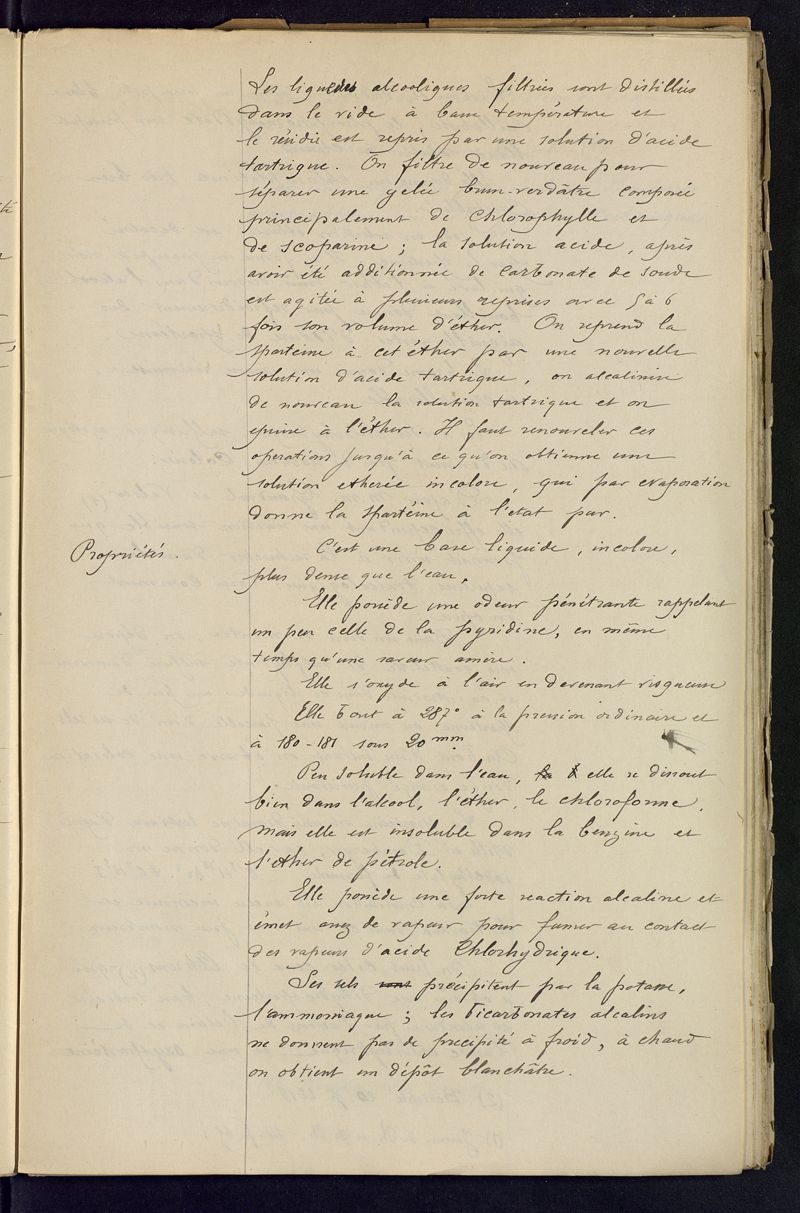 Les liquides alcooliques filtrés sont distillés
dans le vide à basse température et
le résidu est repris par une solution d'acide
tartrique. On filtre de nouveau pour
séparer une gelée brun-verdâtre composée
principalement de Chlorophylle et
de scoparine ; la solution acide, après
avoir été additionnée de carbonate de soude
est agitée à plusieurs reprises avec 5 à 6
fois son volume d'éther. On reprend la
spartéine à cet éther par une nouvelle
solution d'acide tartrique, on alcalinise
de nouveau la solution tartrique et on
épuise à l'éther. Il faut renouveler ces
opérations jusqu'à ce qu'on obtienne une
solution etherée incolore, qui par evaporation
donne la spartéine à l'état pur.
Propriétés.
C'est une base liquide, incolore,
plus dense que l'eau.
Elle possède une odeur pénétrante rappelant
un peu celle de la pyridine, en même
temps qu'une saveur amère.
Elle s'oxyde à l'air en devenant visqueuse
Elle bout à 287° à la pression ordinaire et
à 180-181 sous 20 mm.
Peu soluble dans l'eau, elle se dissout
bien dans l'alcool, l'éther, le chloroforme,
mais elle est insoluble dans la benzine et
l'ether de pétrole.
Elle possède une forte reaction alcaline et
émet assez de vapeur pour fumer au contact
des vapeurs d'acide Chlorhydrique.
Ses sels sont précipitent par la potasse,
l'ammoniaque ; les bicarbonates alcalins
ne donnent pas de precipité à froid, à chaud
on obtient un dépôt blanchâtre.